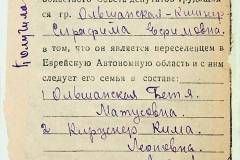 областного Совета депутатов трудящих-
ся гр. Ольшанская-Кишнер
Серафима Ефимовна.
в том, что он является переселенцем в
Еврейскую Автономную область и с ним
следует его семья в составе:
1 Ольшанская Бетя.
Матусовна.
2. Кирхнер Кима.
Леоновна.
Получила